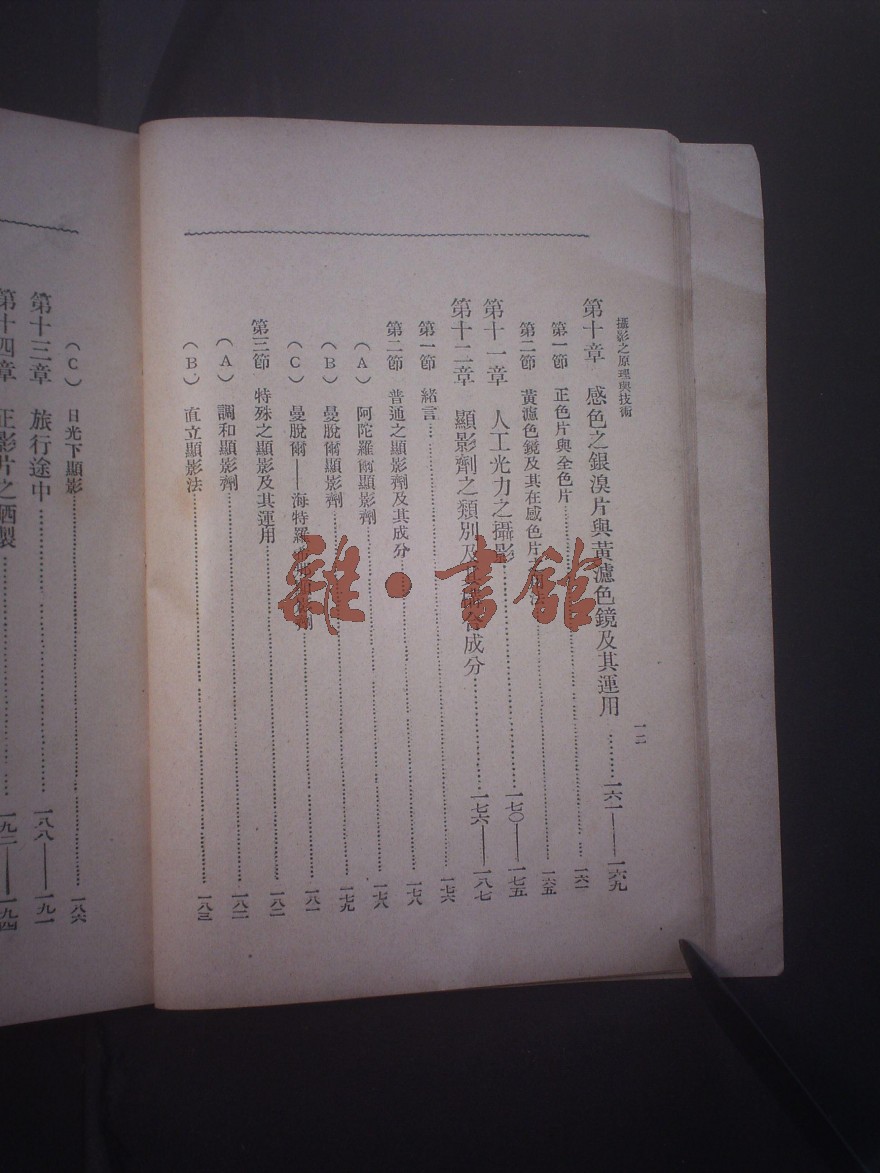 攝影之原理與技術
一二
第十章 感色之銀溴片與黃濾色鏡及其運用………一六一——一六九
第一節 正色片與全色片………一六一
第二節 黃濾色鏡及其在感色片………一六五
第十一章 人工光力之攝影………一七〇——一七五
第十二章 顯影劑之類別及 合成分………一七六——一八七
第一節 緒言………一七六
第二節 普通之顯影劑及其成分………一七八
(A) 阿陀羅爾顯影劑………一七八
(B) 曼脫爾顯影劑………一七九
(C) 曼脫爾——海特羅 劑………一八一
第三節 特殊之顯影及其運用………一八二
(A) 調和顯影劑………一八二
(B) 直立顯影法………一八三
(C) 日光下顯影………一八六
第十三章 旅行途中………一八八——一九一
第十四章 正影片之晒製………一九二——一九四
雜·書館